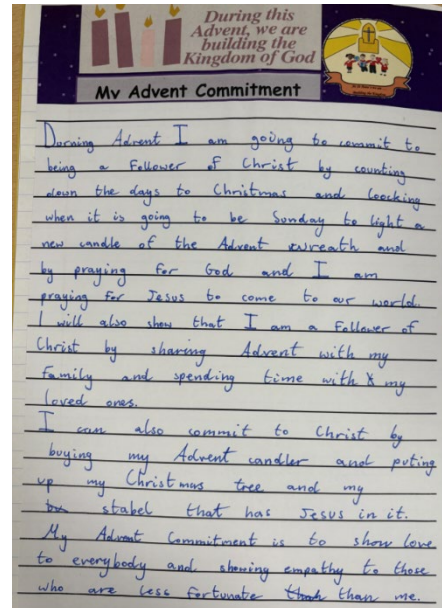 During this
Advent, we are
building the
Kingdom of God
My Advent Commitment
Durning Advent I am going to commit to
being a follower of Christ by counting
down the days to Christmas and loocking
when it is going to be Sunday to light a
new candle of the Advent wreath and
by praying for God and I am
praying for Jesus to come to our world.
I will also show that I am a follower of
Christ by sharing Advent with my
family and spending time with my
loved ones.
I can also commit to Christ by
buying my Advent candler and puting
up my Christmas tree and my
stabel that has Jesus in it.
My Advent Commitment is to show love
to everybody and showing empathy to those
who are less fortunate than me.